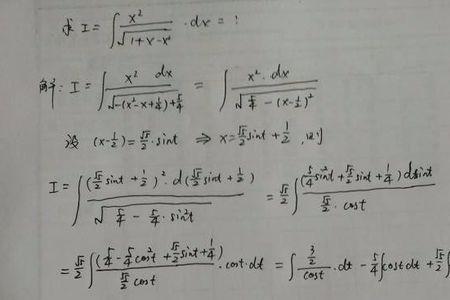 求 I = ∫ x²/√(1+x-x²) · dx = ?
解: I = ∫ x² dx/√(-(x²-x+1/4)+5/4) = ∫ x²·dx/√(5/4-(x-1/2)²)
设 (x-1/2) = √5/2·sint ⇒ x = √5/2 sint + 1/2, 则
I = ∫ (√5/2 sint + 1/2)²·d(√5/2 sint + 1/2)/√(5/4 - 5/4·sin²t) = √5/2 ∫ (5/4 sin²t + √5/2 sint + 1/4) dsint/(√5/2·cost)
= √5/2 ∫ (5/4 - 5/4 cos²t + √5/2 sint + 1/4)/(√5/2 cost) · cost·dt = ∫ (3/2)/cost · dt - 5/4 ∫ cost dt + √5/2 ∫